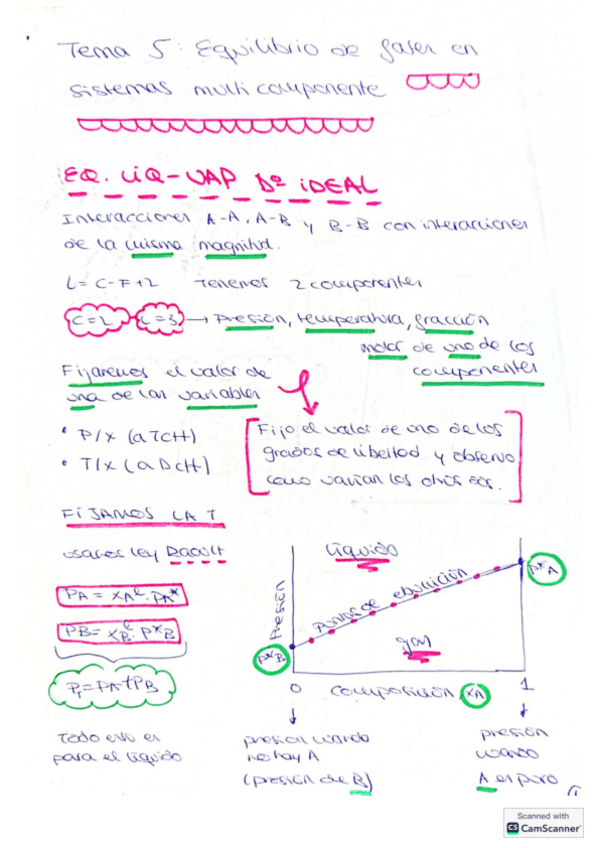 Tema 5: Equilibrio de gases en
sistemas multicomponente
EQ. LIQ-VAP Dº IDEAL
Interacciones A-A, A-B y B-B con interacciones
de la misma magnitud.
L = C-F+2 Tenemos 2 componentes
C=2 L=3 → Presión, temperatura, fracción
molar de uno de los
componentes
Fijaremos el valor de
una de las variables
• P/x (a Tctt)
• T/x (a Pctt)
[Fijo el valor de uno de los
grados de libertad y observo
como varían los otros dos.]
FIJAMOS LA T
usamos ley Raoult
PA = xAˡ · PA*
PB = xBˡ · P*B
PT = PA + PB
Todo esto es
para el líquido
Presión
líquido
Puntos de ebullición
gas
P*A
P*B
0 composición, xA 1
presión cuando
no hay A
(presión de B)
presión
cuando
A es puro
Scanned with
CS CamScanner